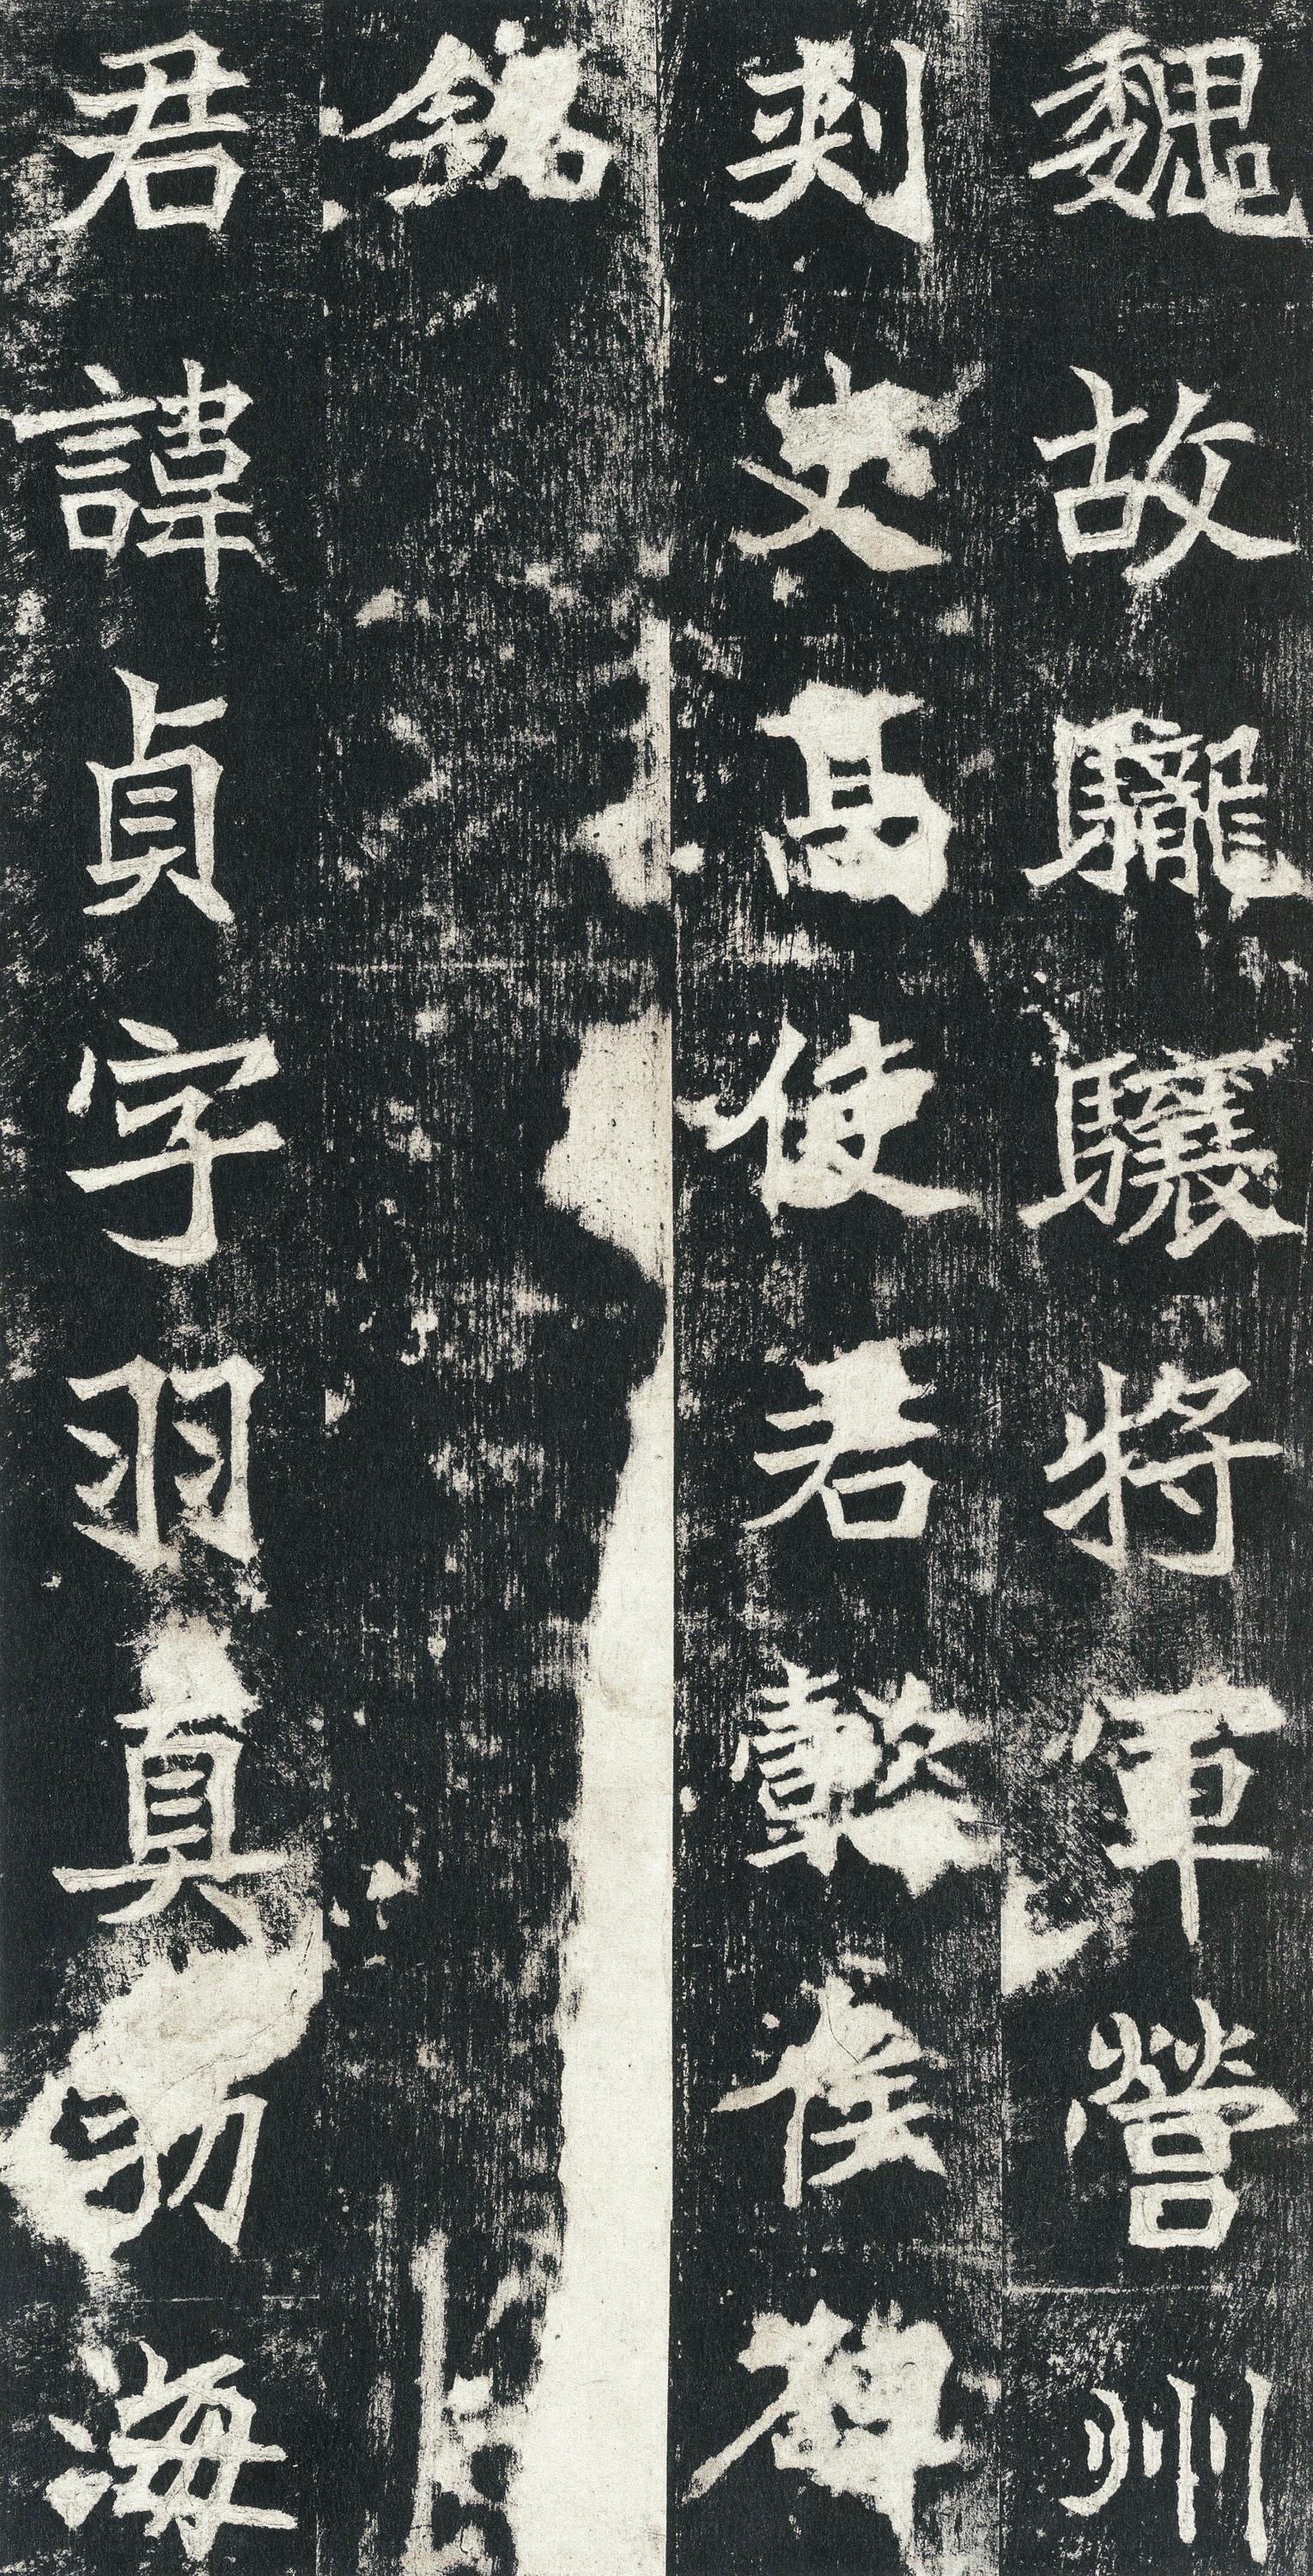 魏故䮾驤將軍營州
刺史高使君懿侯碑
銘
君諱貞字羽真勃海